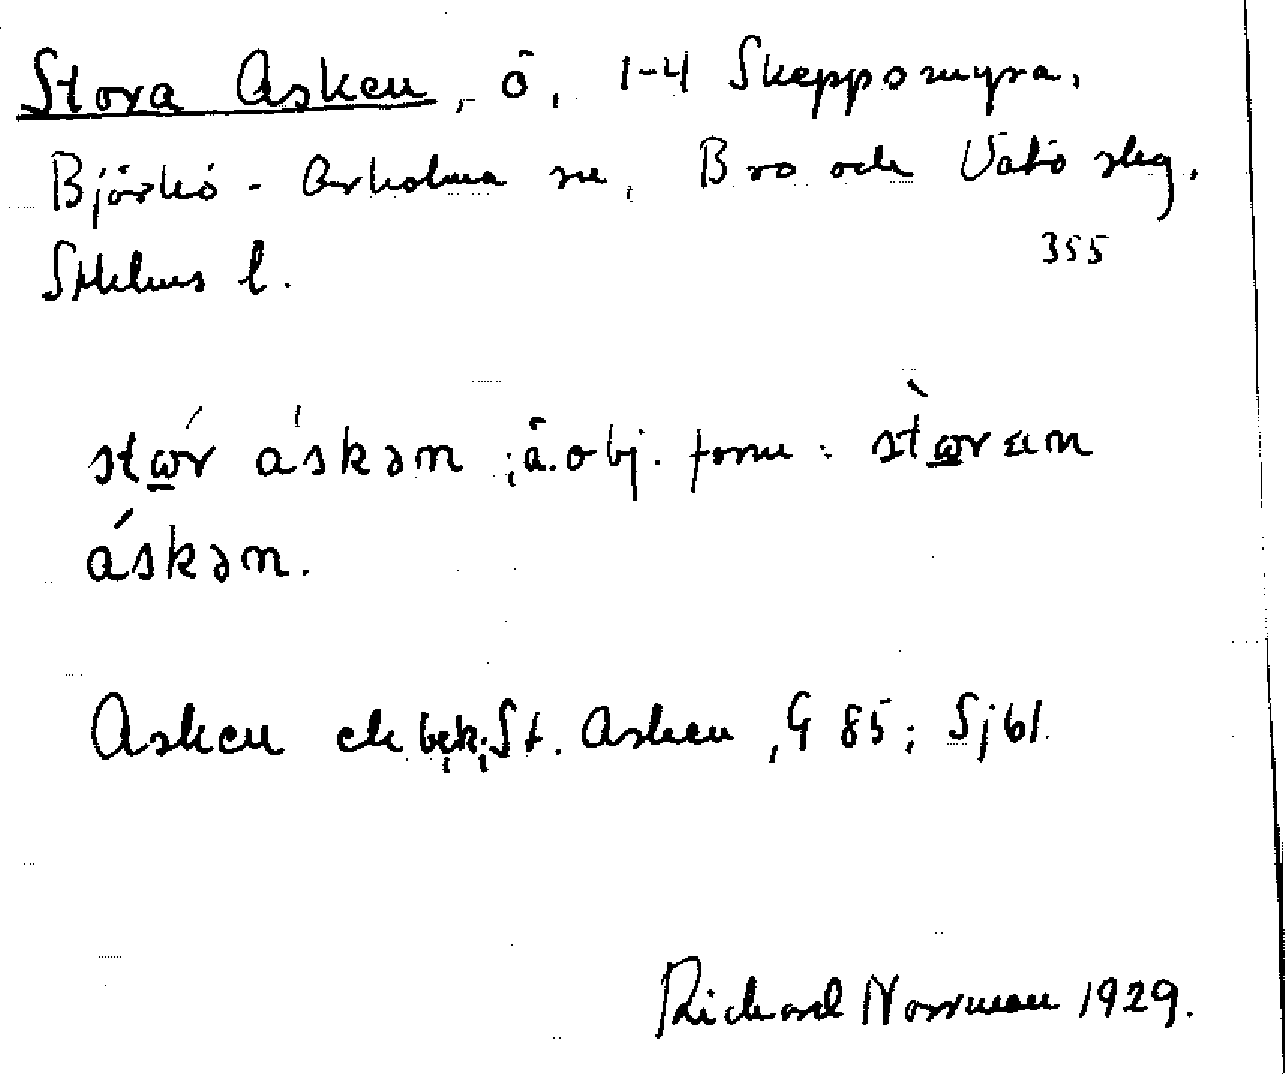 Stora Asken, ö, 1-4 Skeppsmyra,
Björkö-Arholma sn, Bro och Vätö skg,
Sthlms l. 355
stώ̲r áskən ; ä. obj. form: stὼ̲ran
áskən.
Asken ek bek; St. Asken, G 85; Sjbl
Richard Norrman 1929.